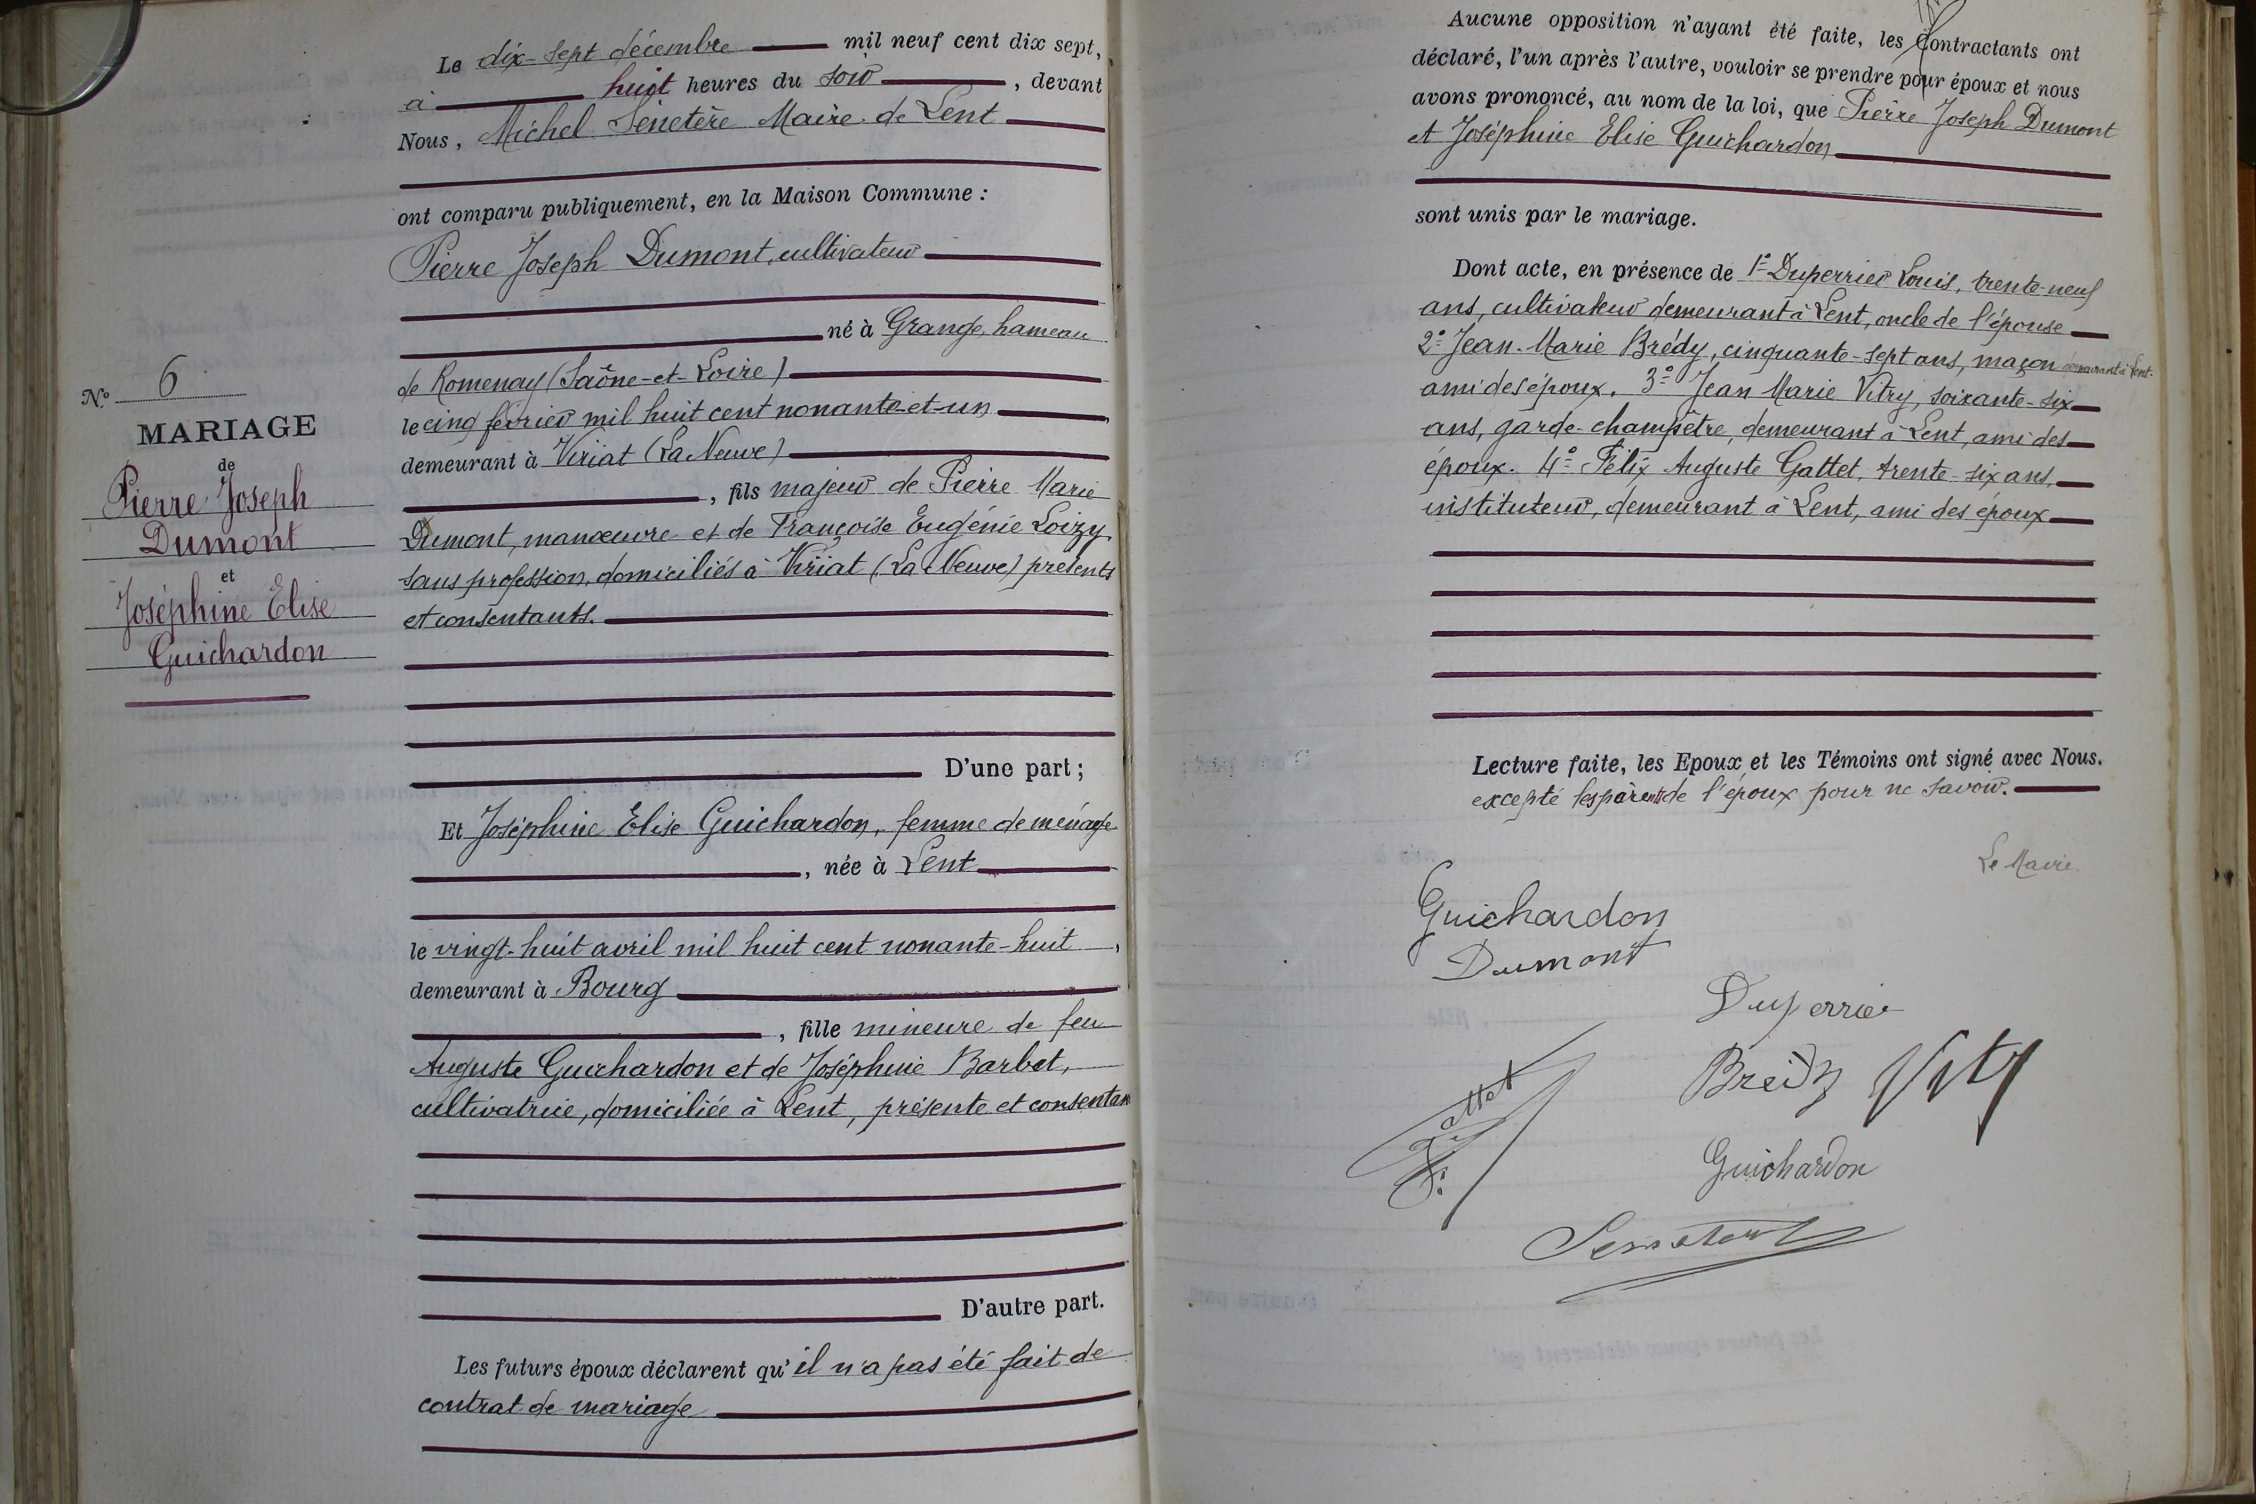 Le dix-sept décembre mil neuf cent dix sept,
à huit heures du soir, devant
Nous, Michel Sénetère Maire de Lent
ont comparu publiquement, en la Maison Commune :
Pierre Joseph Dumont, cultivateur
né à Grange, hameau
de Romenay (Saône-et-Loire)
le cinq février mil huit cent nonante-et-un,
demeurant à Viriat (La Neuve)
, fils majeur de Pierre Marie
Dumont, manœuvre et de Françoise Eugénie Loizy
sans profession, domiciliés à Viriat (La Neuve) présents
et consentants.
D'une part ;
Et Joséphine Elise Guichardon, femme de ménage
, née à Lent
le vingt-huit avril mil huit cent nonante-huit,
demeurant à Bourg
, fille mineure de feu
Auguste Guichardon et de Joséphine Barbet,
cultivatrice, domiciliée à Lent, présente et consentan
D'autre part.
Les futurs époux déclarent qu'il n'a pas été fait de
contrat de mariage
N° 6
MARIAGE
de
Pierre Joseph
Dumont
et
Joséphine Elise
Guichardon
Aucune opposition n'ayant été faite, les Contractants ont
déclaré, l'un après l'autre, vouloir se prendre pour époux et nous
avons prononcé, au nom de la loi, que Pierre Joseph Dumont
et Joséphine Elise Guichardon
sont unis par le mariage.
Dont acte, en présence de 1° Duperrier Louis, trente-neuf
ans, cultivateur demeurant à Lent, oncle de l'épouse
2° Jean-Marie Brédy, cinquante-sept ans, maçon demeurant à Lent
ami des époux. 3° Jean Marie Vitry, soixante-six
ans, garde-champêtre, demeurant à Lent, ami des
époux. 4° Félix Auguste Gattet, trente-six ans,
instituteur, demeurant à Lent, ami des époux
Lecture faite, les Epoux et les Témoins ont signé avec Nous.
excepté les parents de l'époux pour ne savoir.
Le Maire
Guichardon
Dumont
Duperrier
Bredy Vitry
Gattet
Guichardon